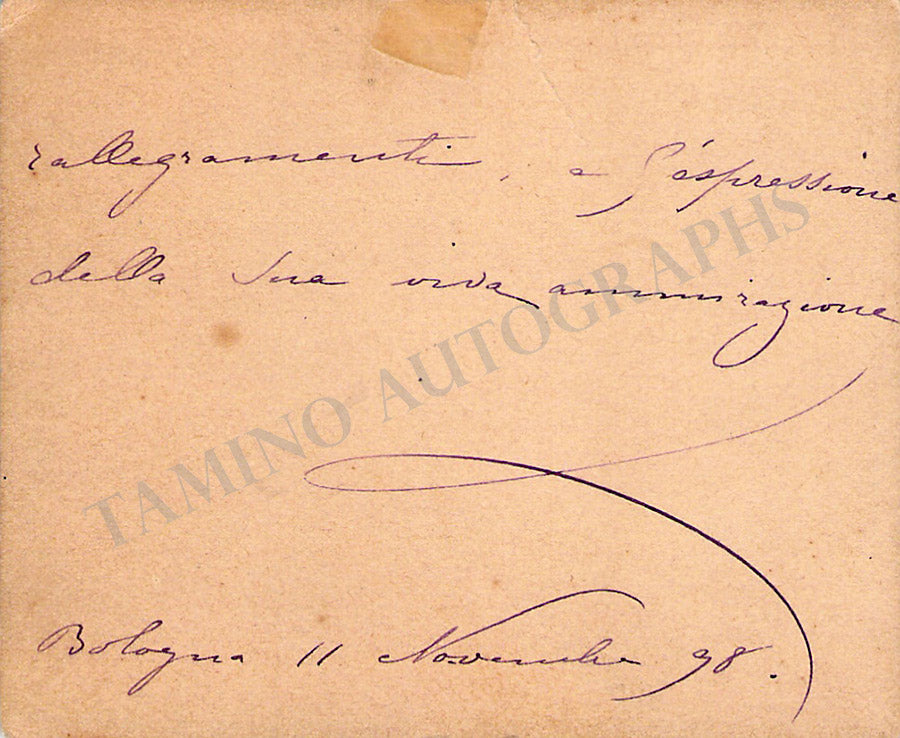 rallegramenti, e l'espressione
della Sua viva ammirazione
Bologna 11 Novembre 98.
TAMINO AUTOGRAPHS